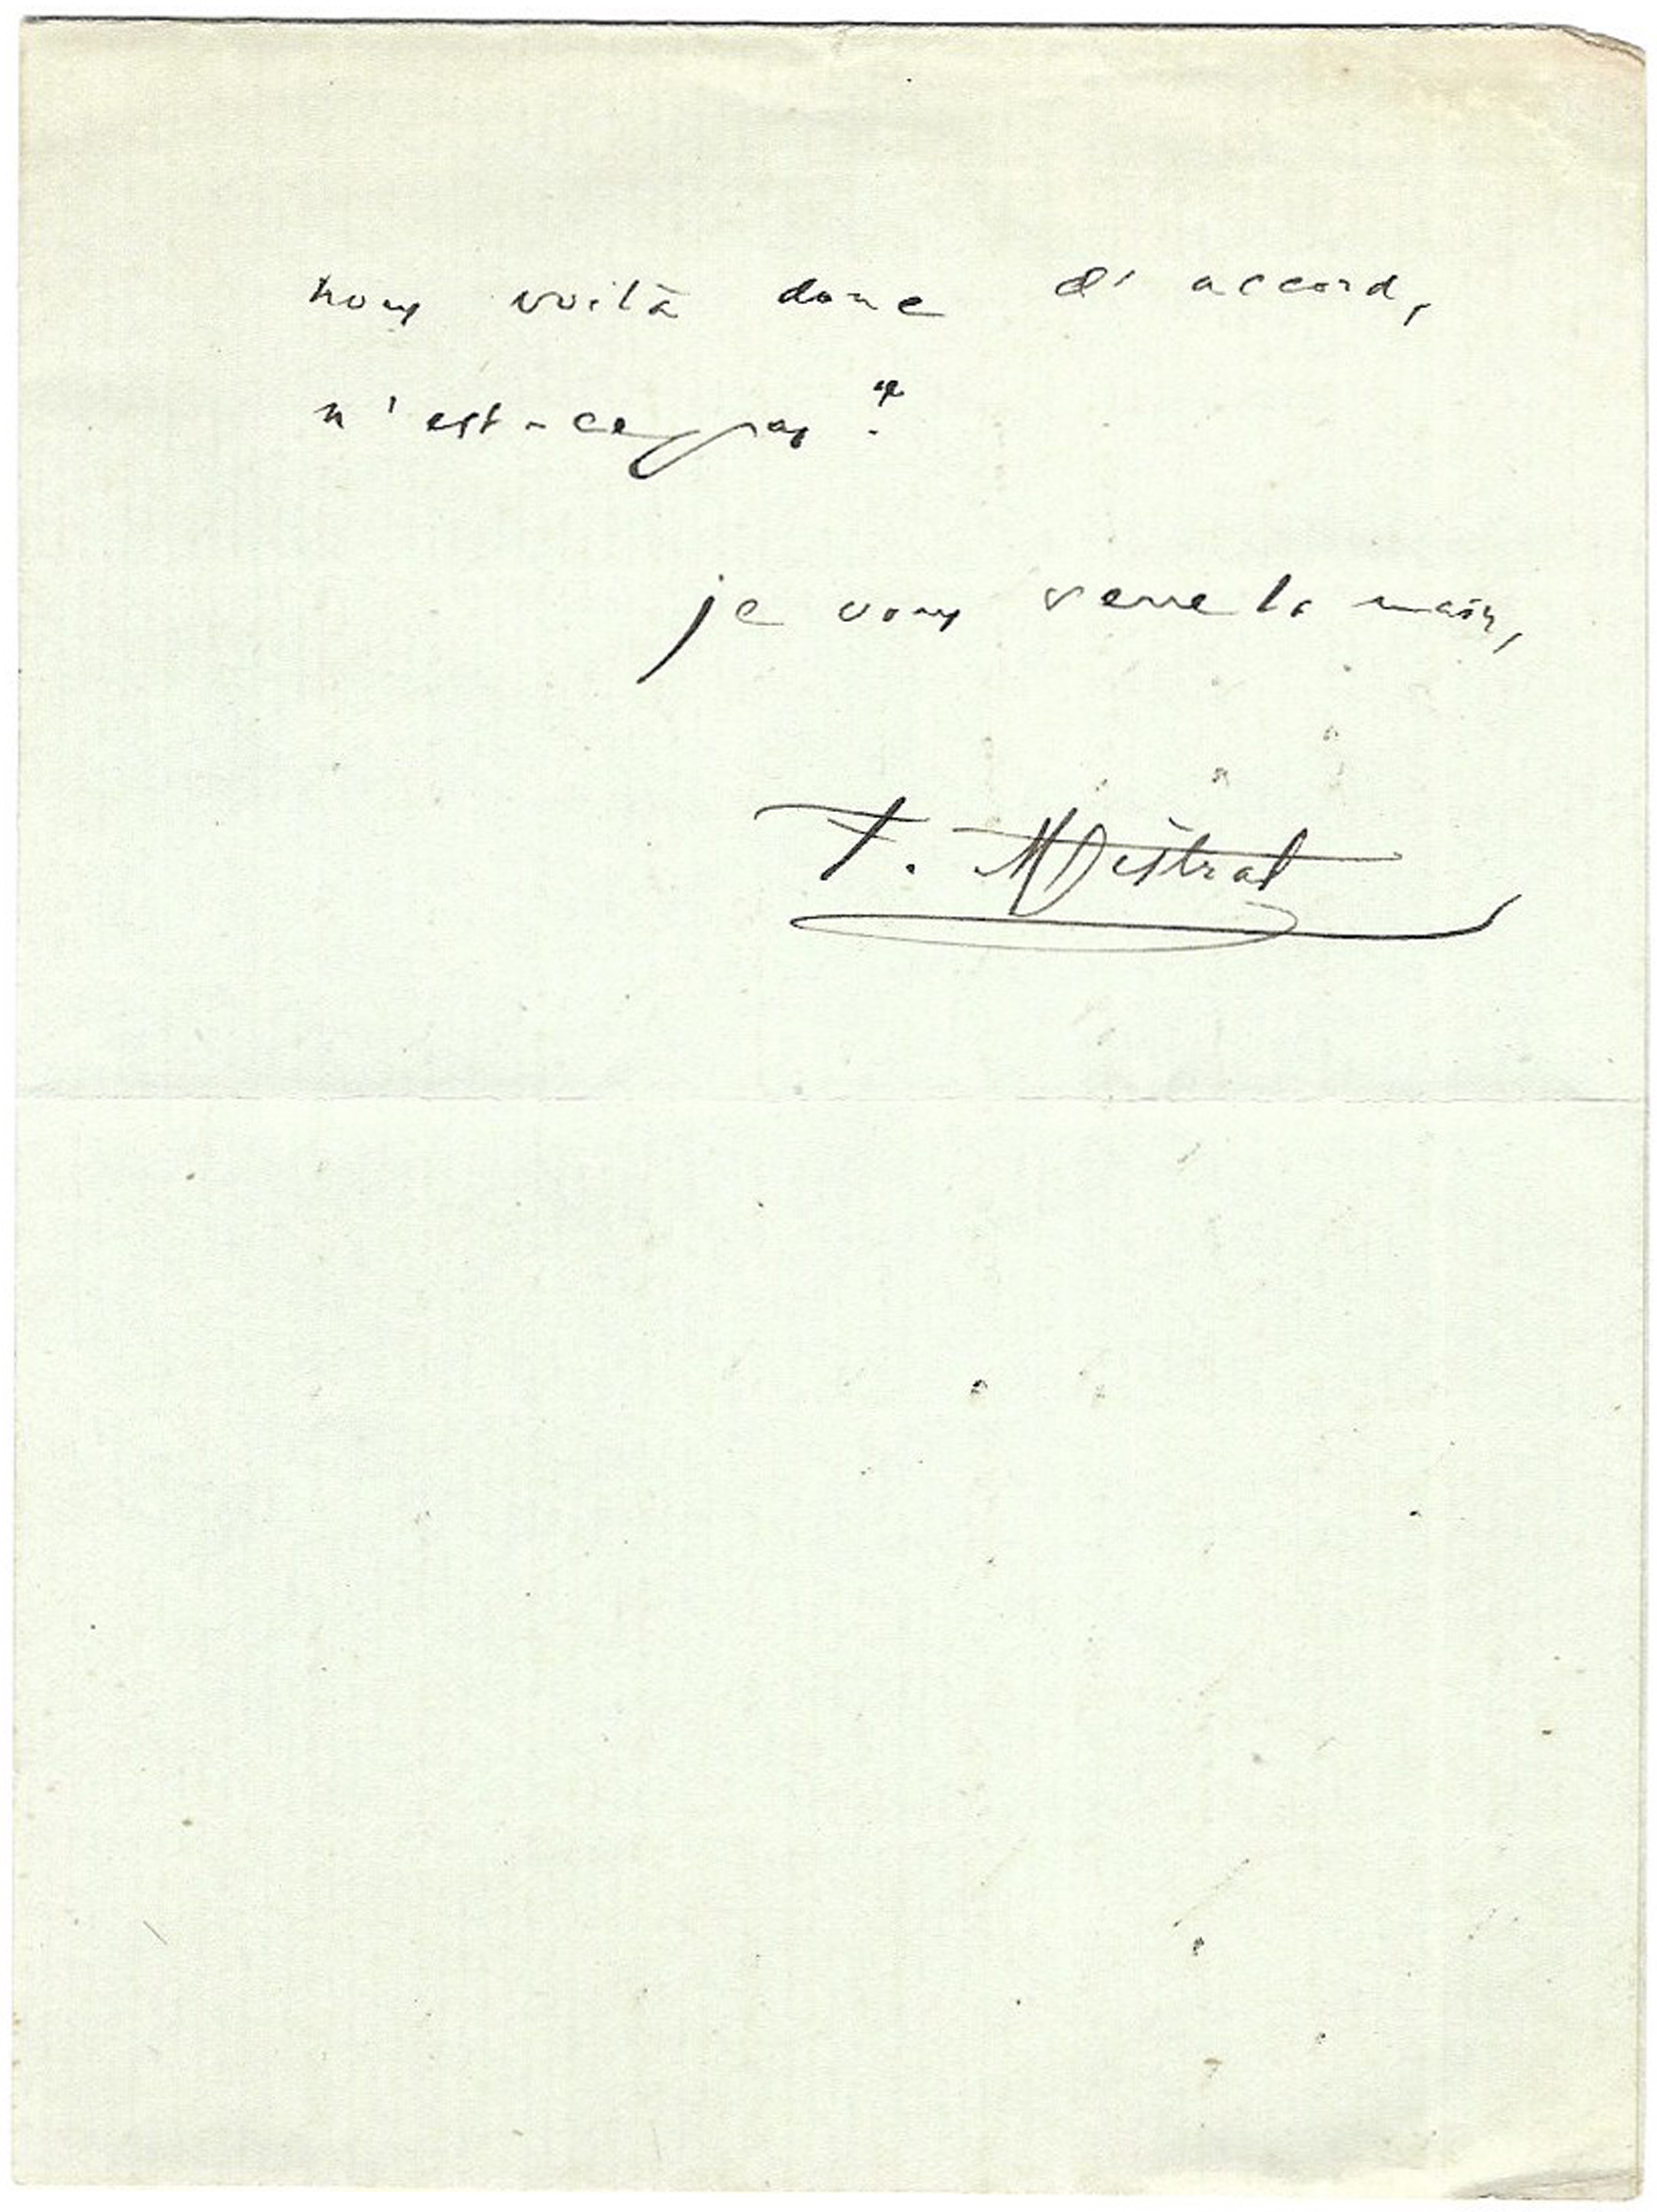 nous voilà donc d'accord,
n'est-ce pas ?
je vous serre la main,
F. Mistral